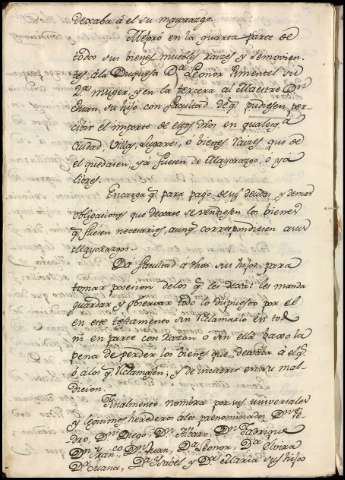 dexaba á el su mayorazgo.
Mejoró en la quarta parte de
todos sus bienes muebles raizes y semovien-
tes á la Duquesa Dª Leonor Pimentel su
2ª muger, y en la tercera al Maestre Dn
Juan, su hijo con facultad de q. pudiesen per-
civir el importe de ellos en qualesqª
Ciudad Villas, lugares, o bienes raizes que de
el quedasen, ya fuesen de Mayorazgo, o ya
libres.
Encarga q. para pago de sus deudas, y demas
obligaciones que dexare se vendiesen los bienes
q. fuesen necesarios, aunq. correspondiesen a sus
Mayorazgos.
Da facultad a dhos sus hijos para
tomar posesion de lo q. les dexa: les manda
guardar y observar todo lo dispuesto por el
en este testamento sin reclamarlo en todo
ni en parte con razon o sin ella baxo la
pena de perder los bienes que dexaba á el q.
ó a los q. reclamasen, y de incurrir en su mal-
dicion.
Finalmente nombra por sus universales
y legitimos herederos a los prenominados Dn Pe-
dro, Dn Diego, Dn Alvaro, Dn Fadrique
Dn Franco Dn Juan, Dª Leonor, Dª Elvira
Dª Juana, Dª Isabel y Dª Maria sus hijos